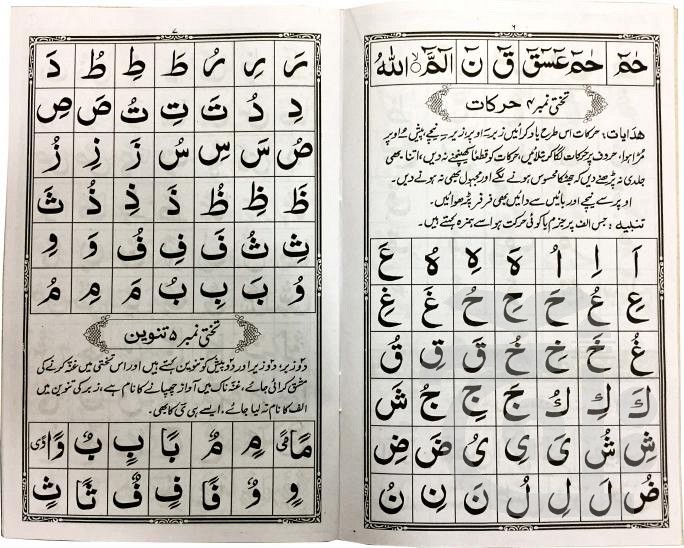 ٦
حٰمٓ حٰمٓ عٓسٓقٓ قٓ نٓ الٓمَّٓ اللّٰهُ
تختی نمبر ۴ حرکات
ھدایات: حرکات اس طرح یاد کرائیں زبر ـَ اوپر، زیر ـِ نیچے، پیش ـُ اوپر
مُڑا ہوا، حروف پر حرکات لگا کر بتلائیں، حرکات کو قطعاً کھینچنے نہ دیں، اتنا بھی
جلدی نہ پڑھنے دیں کہ جھٹکا محسوس ہونے لگے اور مجہول بھی نہ ہونے دیں۔
اوپر سے نیچے اور بائیں سے دائیں بھی فرفر پڑھوائیں۔
تنبیہ: جس الف پر جزم یا کوئی حرکت ہو اسے ھمزہ کہتے ہیں۔
اَ اِ اُ هَ هِ هُ عَ
عِ عُ حَ حِ حُ غَ غِ
غُ خَ خِ خُ قَ قِ قُ
كَ كِ كُ جَ جِ جُ شَ
شِ شُ یَ یِ یُ ضَ ضِ
ضُ لَ لِ لُ نَ نِ نُ
٧
رَ رِ رُ طَ طِ طُ دَ
دِ دُ تَ تِ تُ صَ صِ
صُ سَ سِ سُ زَ زِ زُ
ظَ ظِ ظُ ذَ ذِ ذُ ثَ
ثِ ثُ فَ فِ فُ وَ وِ
وُ بَ بِ بُ مَ مِ مُ
تختی نمبر ۵ تنوین
دو زبر، دو زیر اور دو پیش کو تنوین کہتے ہیں اور اس تختی میں غنّہ کرنے کی
مشق کرائی جائے، غنّہ ناک میں آواز چھپانے کا نام ہے، زبر کی تنوین میں
الف کا نام نہ لیا جائے، ایسے ہی ی کا بھی۔
مًا مًی مٍ مٌ بًا بٍ بٌ وًا وًی
وٍ وٌ فًا فٍ فٌ ثًا ثٍ